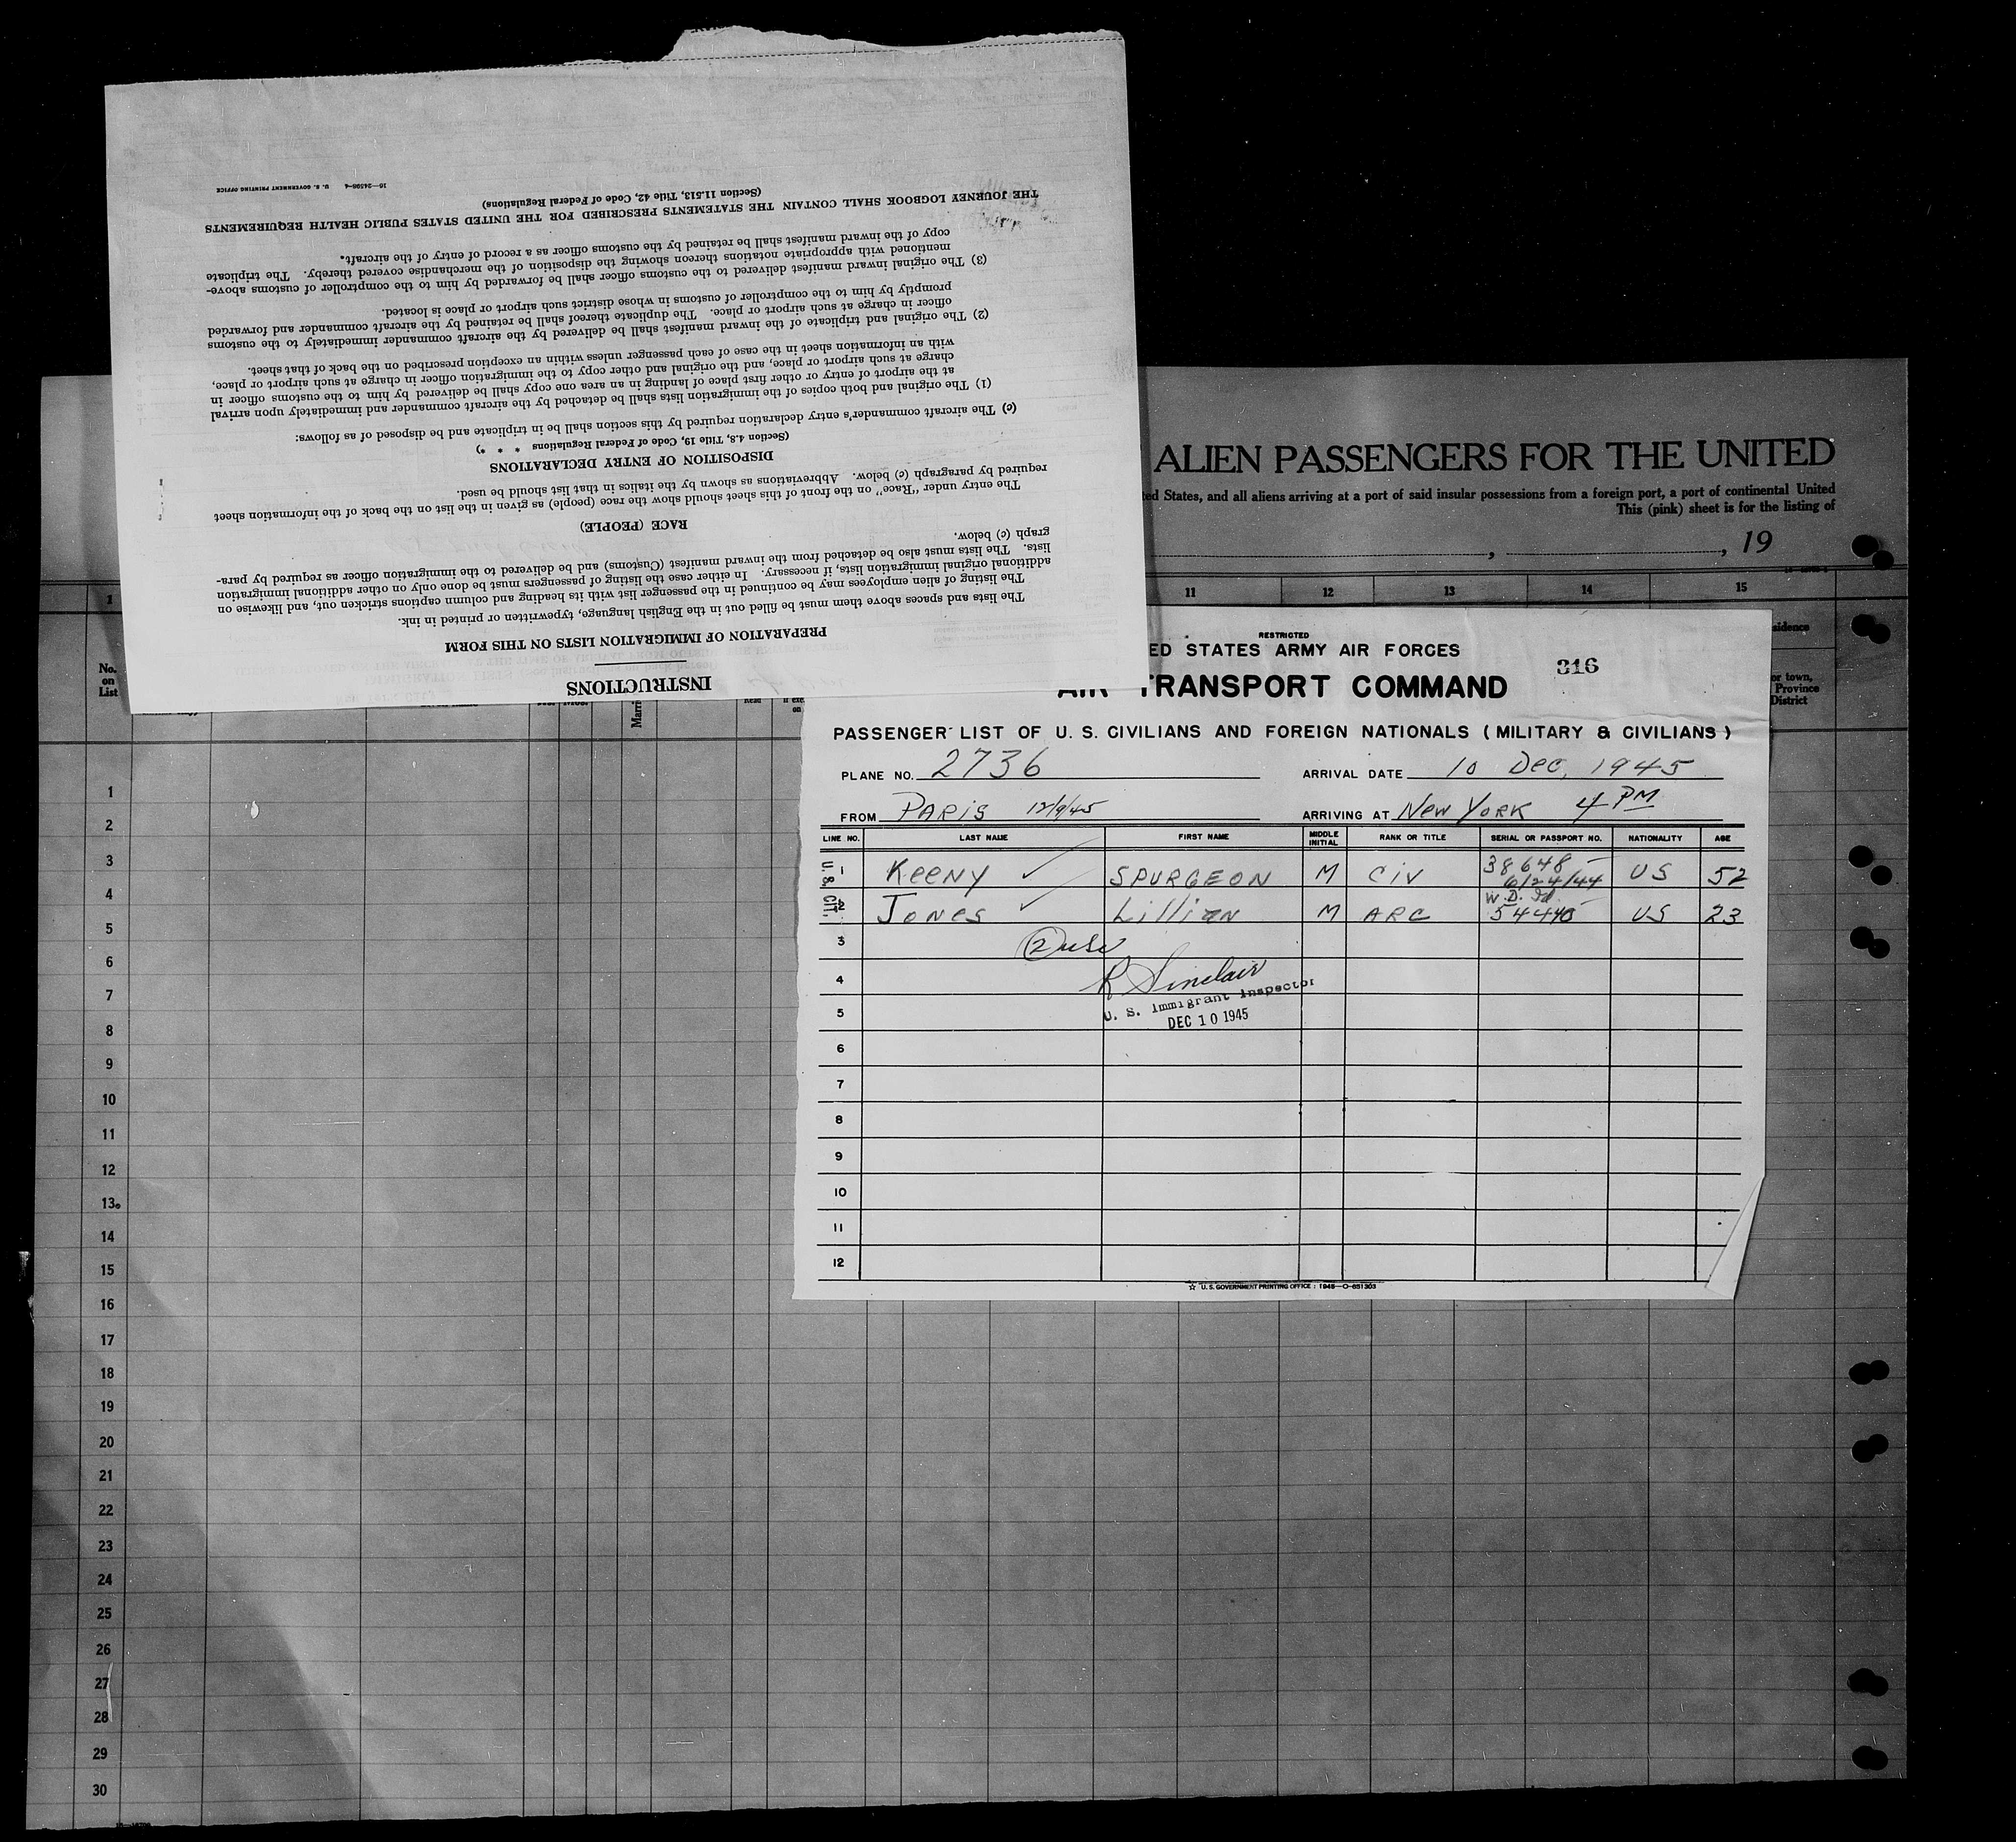 INSTRUCTIONS
PREPARATION OF IMMIGRATION LISTS ON THIS FORM
The lists and spaces above them must be filled out in the English language, typewritten or printed in ink.
The listing of alien employees may be continued in the passenger list with its heading and column captions stricken out, and likewise on
additional original immigration lists, if necessary. In either case the listing of passengers must be done only on other additional immigration
lists. The lists must also be detached from the inward manifest (Customs) and be delivered to the immigration officer as required by para-
graph (c) below.
RACE (PEOPLE)
The entry under "Race" on the front of this sheet should show the race (people) as given in the list on the back of the information sheet
required by paragraph (c) below. Abbreviations as shown by the italics in that list should be used.
DISPOSITION OF ENTRY DECLARATIONS
(Section 4.3, Title 19, Code of Federal Regulations * * *)
(c) The aircraft commander's entry declaration required by this section shall be in triplicate and be disposed of as follows:
(1) The original and both copies of the immigration lists shall be detached by the aircraft commander and immediately upon arrival
at the airport of entry or other first place of landing in an area one copy shall be delivered by him to the customs officer in
charge at such airport or place, and the original and other copy to the immigration officer in charge at such airport or place,
with an information sheet in the case of each passenger unless within an exception prescribed on the back of that sheet.
(2) The original and triplicate of the inward manifest shall be delivered by the aircraft commander immediately to the customs
officer in charge at such airport or place. The duplicate thereof shall be retained by the aircraft commander and forwarded
promptly by him to the comptroller of customs in whose district such airport or place is located.
(3) The original inward manifest delivered to the customs officer shall be forwarded by him to the comptroller of customs above-
mentioned with appropriate notations thereon showing the disposition of the merchandise covered thereby. The triplicate
copy of the inward manifest shall be retained by the customs officer as a record of entry of the aircraft.
THE JOURNEY LOGBOOK SHALL CONTAIN THE STATEMENTS PRESCRIBED FOR THE UNITED STATES PUBLIC HEALTH REQUIREMENTS
(Section 11.513, Title 42, Code of Federal Regulations)
16—24598-4 U. S. GOVERNMENT PRINTING OFFICE
ALIEN PASSENGERS FOR THE UNITED
ed States, and all aliens arriving at a port of said insular possessions from a foreign port, a port of continental United
This (pink) sheet is for the listing of
, , 19
1 11 12 13 14 15
No. on List
Read
or town,
Province
District
RESTRICTED
ED STATES ARMY AIR FORCES
316
AIR TRANSPORT COMMAND
PASSENGER LIST OF U. S. CIVILIANS AND FOREIGN NATIONALS (MILITARY & CIVILIANS)
PLANE NO. 2736 ARRIVAL DATE 10 Dec, 1945
FROM PARIS 12/9/45 ARRIVING AT New York 4 PM
LINE NO. LAST NAME FIRST NAME MIDDLE INITIAL RANK OR TITLE SERIAL OR PASSPORT NO. NATIONALITY AGE
U. S. CIT.
1 KEENY SPURGEON M CIV 38648 6/24/44 US 52
2 JONES Lillian M ARC W.D. Id. 54440 US 23
3 2 usc
4 R Sinclair
5 U. S. Immigrant Inspector
DEC 10 1945
6
7
8
9
10
11
12
☆ U. S. GOVERNMENT PRINTING OFFICE : 1945—O-651303
1
2
3
4
5
6
7
8
9
10
11
12
13
14
15
16
17
18
19
20
21
22
23
24
25
26
27
28
29
30